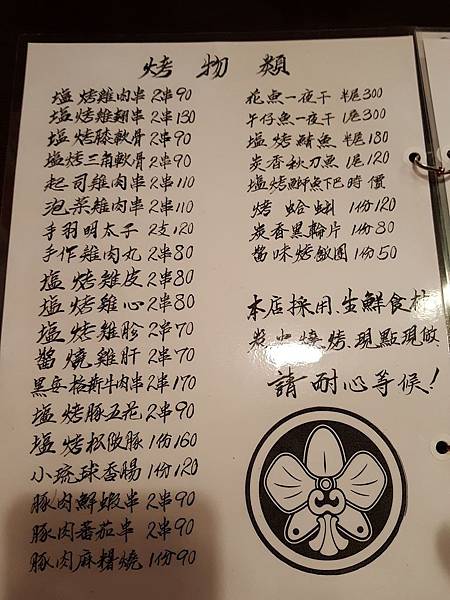 烤物類
塩烤雞肉串 2串90
塩烤雞翅串 2串130
塩烤膝軟骨 2串90
塩烤三角軟骨 2串90
起司雞肉串 2串110
泡菜雞肉串 2串110
手羽明太子 2支120
手作雞肉丸 2串80
塩烤雞皮 2串80
塩烤雞心 2串80
塩烤雞胗 2串70
醬燒雞肝 2串70
黑安格斯牛肉串 2串170
塩烤豚五花 2串90
塩烤松阪豚 1份160
小琉球香腸 1份120
豚肉鮮蝦串 2串90
豚肉蕃茄串 2串90
豚肉麻糬燒 1份90
花魚一夜干 半尾300
午仔魚一夜干 1尾300
塩烤鯖魚 半尾180
炭香秋刀魚 1尾120
塩烤鰤魚下巴 時價
烤蛤蜊 1份120
炭香黑輪片 1份80
醬味烤飯團 1份50
本店採用.生鮮食材
炭火燒烤.現點現做
請耐心等候!